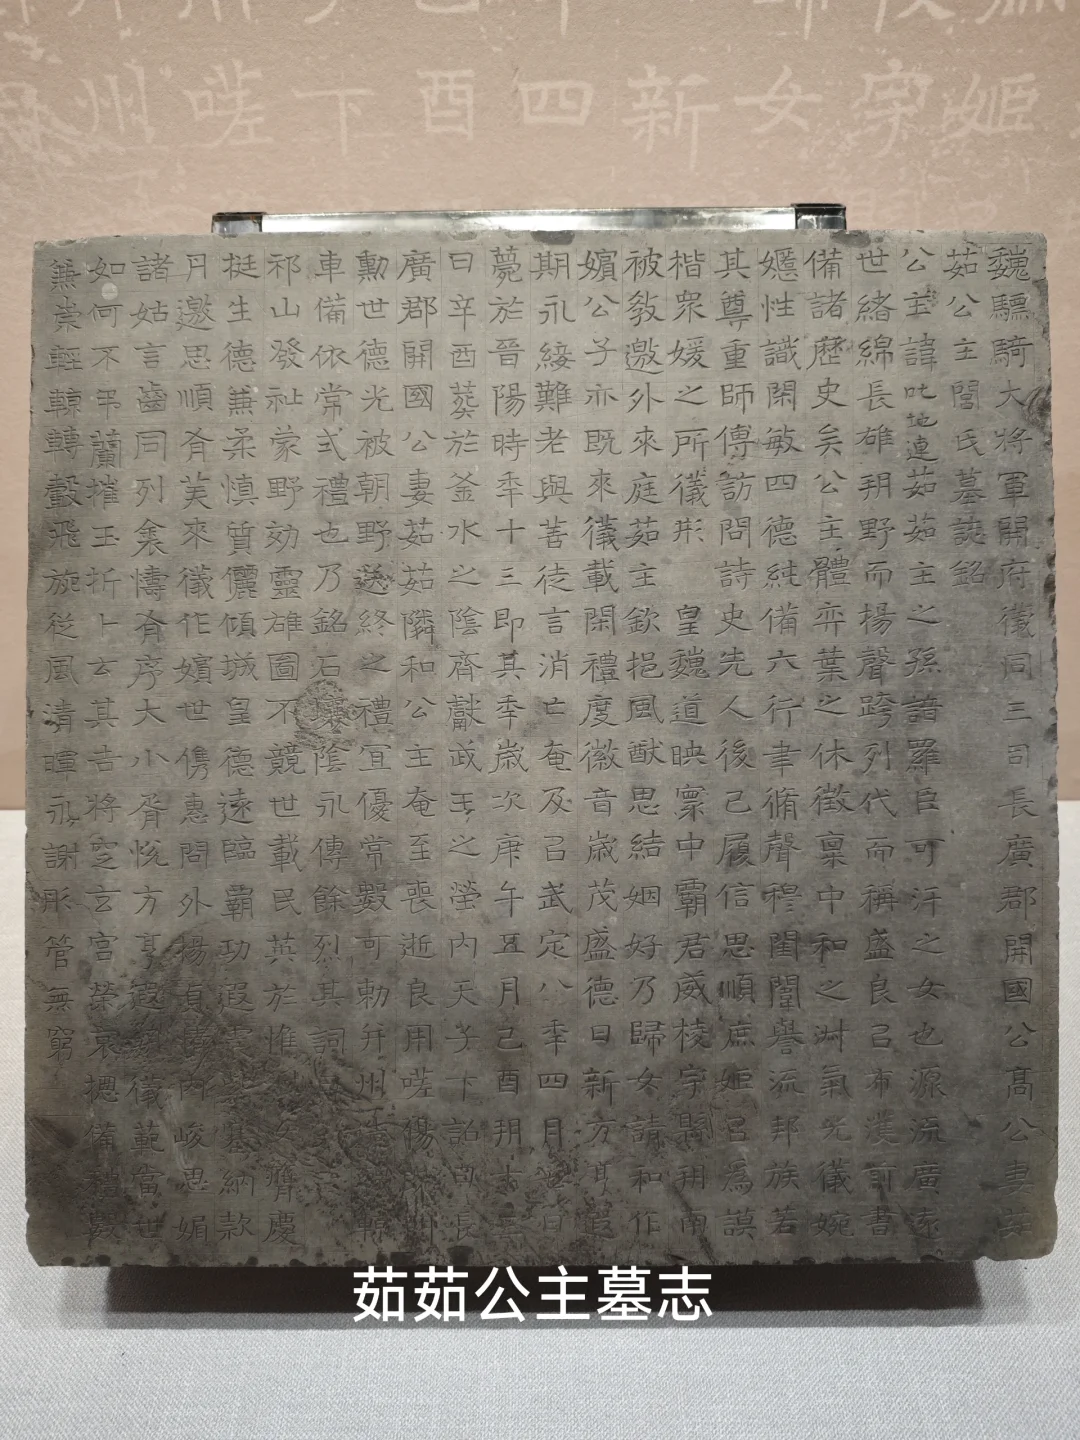 州嗟下酉四新女字姬
魏驃騎大將軍開府儀同三司長廣郡開國公高公妻茹
茹公主閭氏墓誌銘
公主諱叱地連茹茹主之孫諳羅臣可汗之女也源流廣遠
世緒綿長雄朔野而揚聲跨列代而稱盛良㠯布濩前書
備諸歷史矣公主體弈葉之休徵稟中和之淑氣光儀婉
嬺性識閑敏四德純備六行聿脩聲穆閨闈譽流邦族若
其尊重師傅訪問詩史先人後己履信思順庶姬㠯為謨
楷眾媛之所儀形 皇魏道映寰中霸君威棱宇縣朔南
被教邀外來庭茹主欽挹風猷思結姻好乃歸女請和作
嬪公子亦既來儀載閑禮度徽音歲茂盛德日新方亨遐
期永綏難老與善徒言消亡奄及㠯武定八年四月七日
薨於晉陽時年十三即其年歲次庚午五月己酉朔十三
日辛酉葬於釜水之陰齊獻武王之塋內天子下詔曰長
廣郡開國公妻茹茹隣和公主奄至喪逝良用嗟傷
勳世德光被朝野送終之禮宜優常數可勅并州造輬
車備依常式禮也乃銘石壤陰永傳餘烈其詞曰
祁山發祉蒙野効靈雄圖不競世載民英於惟淑女膺慶
挺生德兼柔慎質儷傾城皇德遠臨霸功遐震紫塞納款
丹邀思順有美來儀作嬪世儁惠問外揚貞情內峻思媚
諸姑言齒同列衾幬有序大小胥悅方亨遐儀範當世
如何不弔蘭摧玉折卜云其吉將窆玄宮榮哀揔備禮數
兼崇輕轅轉轂飛旐從風清暉永謝彤管無窮
茹茹公主墓志